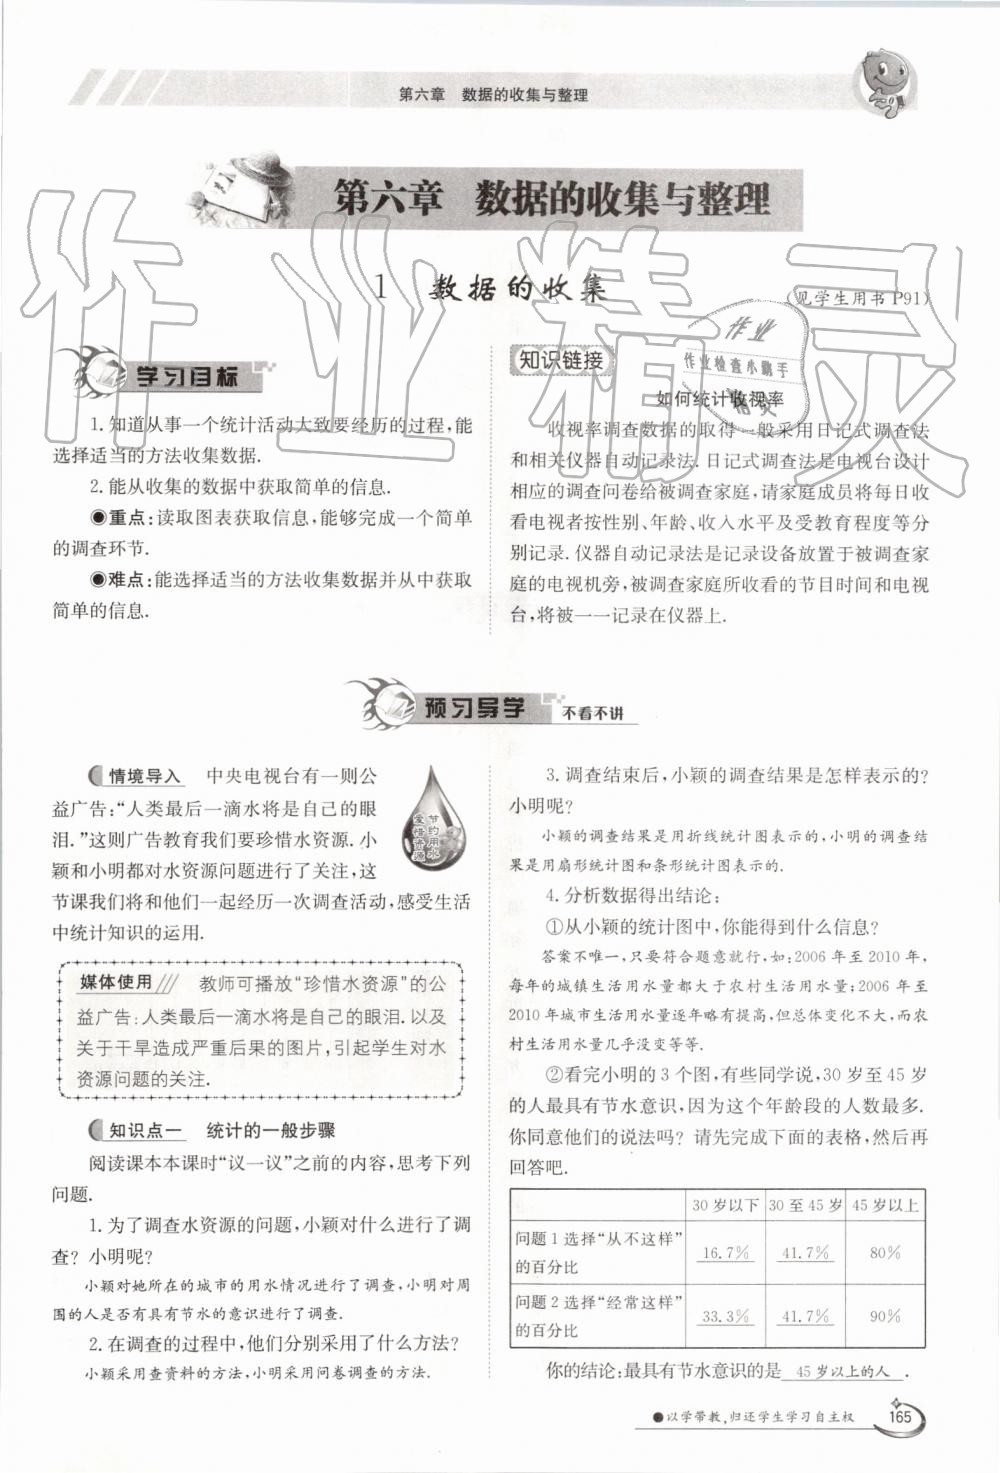 第六章 数据的收集与整理
第六章 数据的收集与整理
1 数据的收集
(见学生用书 P91)
学习目标
1. 知道从事一个统计活动大致要经历的过程,能
选择适当的方法收集数据.
2. 能从收集的数据中获取简单的信息.
●重点:读取图表获取信息,能够完成一个简单
的调查环节.
●难点:能选择适当的方法收集数据并从中获取
简单的信息.
知识链接
如何统计收视率
收视率调查数据的取得一般采用日记式调查法
和相关仪器自动记录法. 日记式调查法是电视台设计
相应的调查问卷给被调查家庭,请家庭成员将每日收
看电视者按性别、年龄、收入水平及受教育程度等分
别记录. 仪器自动记录法是记录设备放置于被调查家
庭的电视机旁,被调查家庭所收看的节目时间和电视
台,将被一一记录在仪器上.
作业精灵
作业
作业检查小助手
精灵
预习导学 不看不讲
情境导入 中央电视台有一则公
益广告:“人类最后一滴水将是自己的眼
泪.”这则广告教育我们要珍惜水资源. 小
颖和小明都对水资源问题进行了关注,这
节课我们将和他们一起经历一次调查活动,感受生活
中统计知识的运用.
节约用水
爱惜资源
媒体使用 教师可播放“珍惜水资源”的公
益广告:人类最后一滴水将是自己的眼泪. 以及
关于干旱造成严重后果的图片,引起学生对水
资源问题的关注.
知识点一 统计的一般步骤
阅读课本本课时“议一议”之前的内容,思考下列
问题.
1. 为了调查水资源的问题,小颖对什么进行了调
查? 小明呢?
小颖对她所在的城市的用水情况进行了调查,小明对周
围的人是否有具有节水的意识进行了调查.
2. 在调查的过程中,他们分别采用了什么方法?
小颖采用查资料的方法,小明采用问卷调查的方法.
3. 调查结束后,小颖的调查结果是怎样表示的?
小明呢?
小颖的调查结果是用折线统计图表示的,小明的调查结
果是用扇形统计图和条形统计图表示的.
4. 分析数据得出结论:
①从小颖的统计图中,你能得到什么信息?
答案不唯一,只要符合题意就行,如:2006 年至 2010 年,
每年的城镇生活用水量都大于农村生活用水量;2006 年至
2010 年城市生活用水量逐年略有提高,但总体变化不大,而农
村生活用水量几乎没变等等.
②看完小明的 3 个图,有些同学说,30 岁至 45 岁
的人最具有节水意识,因为这个年龄段的人数最多.
你同意他们的说法吗? 请先完成下面的表格,然后再
回答吧.
30 岁以下 30 至 45 岁 45 岁以上
问题 1 选择“从不这样”
的百分比 16.7% 41.7% 80%
问题 2 选择“经常这样”
的百分比 33.3% 41.7% 90%
你的结论:最具有节水意识的是 45 岁以上的人 .
●以学带教,归还学生学习自主权 165